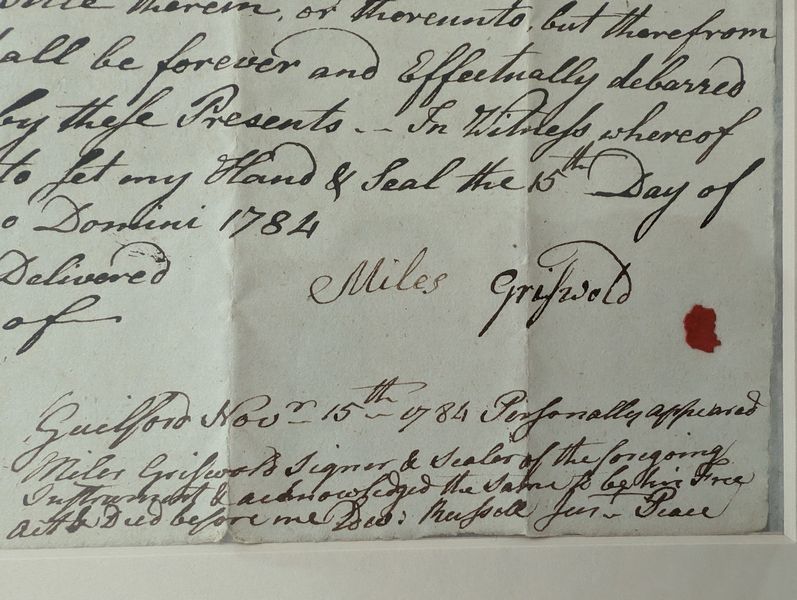 therein, or thereunto, but therefrom
all be forever and Effectually debarred
by theſe Presents -- In Witneſs whereof
to ſet my Hand & Seal the 15th Day of
o Domini 1784
Delivered
of
Miles Griſwold
Guilford Novr 15th 1784 Perſonally appeared
Miles Griſwold Signer & sealer of the foregoing
Instrument & acknowledged the same to be his Free
act & Deed before me Ruſsell Jus Peace